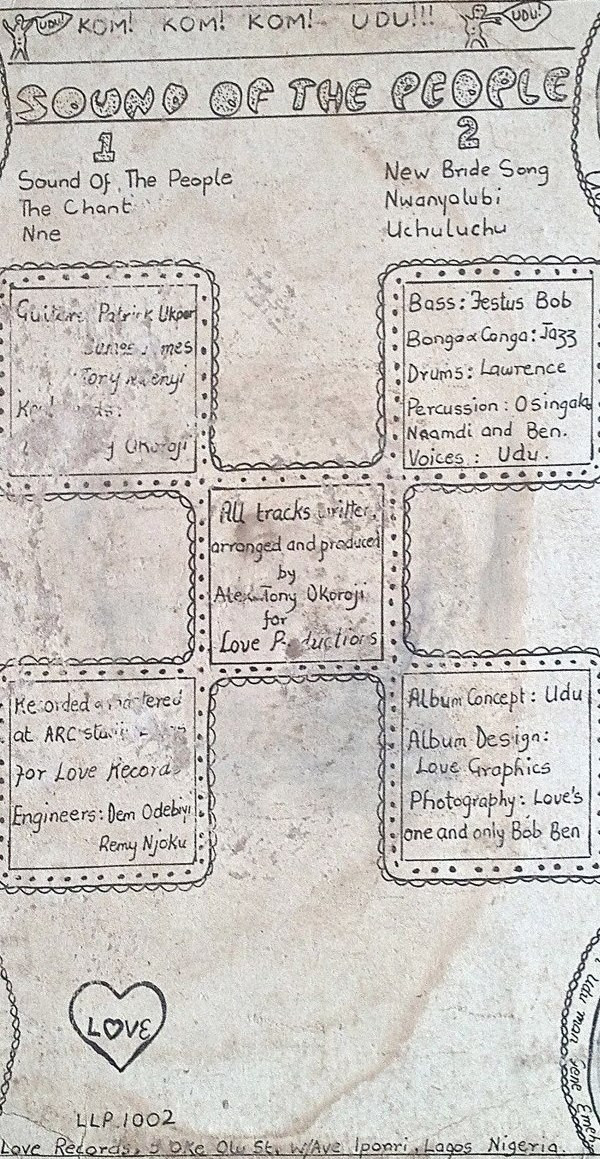 UDU! KOM! KOM! KOM! UDU!!! UDU!
SOUND OF THE PEOPLE
1
Sound Of The People
The Chant
Nne
2
New Bride Song
Nwanyolubi
Uchuluchu
Patrick Ukpor
Tony
Okoroji
Bass: Festus Bob
Bongo & Conga: Jazz
Drums: Lawrence
Percussion: Osingala
Nnamdi and Ben.
Voices: Udu.
All tracks written,
arranged and produced
by
Alex Tony Okoroji
for
Love Productions
Recorded
at ARC
for Love Records
Engineers: Dem Odebiyi
Remy Njoku
Album Concept: Udu
Album Design:
Love Graphics
Photography: Love's
one and only Bob Ben
LOVE
LLP.1002
Love Records, Oke Olu St. W/Ave Iponri, Lagos Nigeria.
Udu man